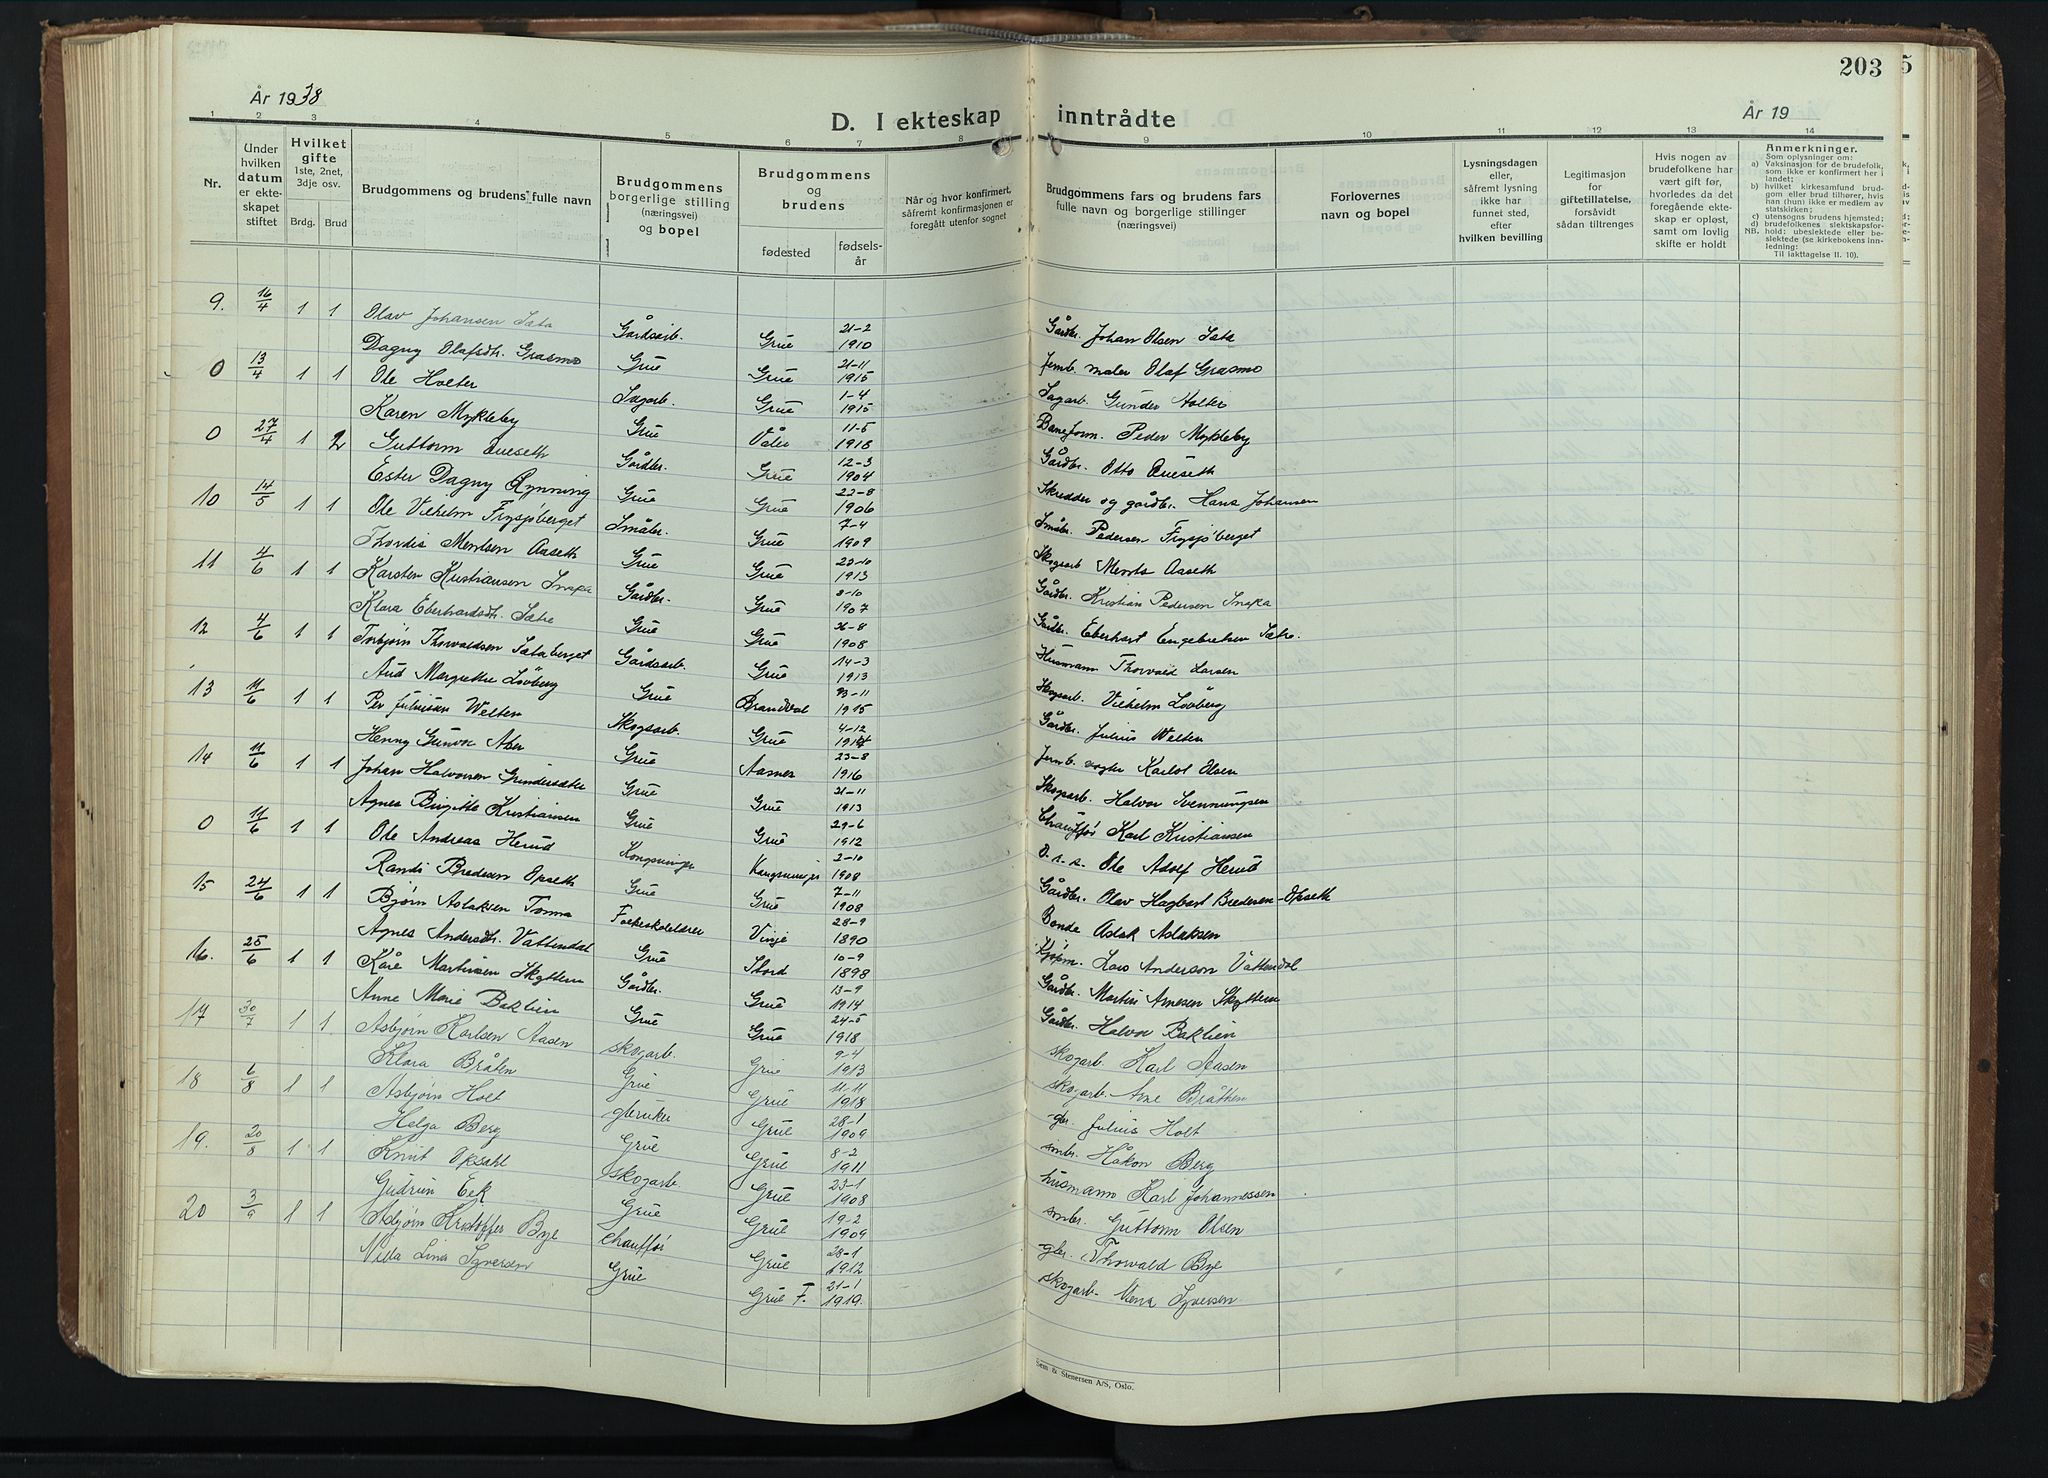 År 1938
D. I ekteskap inntrådte
År 19
203
5
1 2 3 4 5 6 7 8 9 10 11 12 13 14
Nr.
Under hvilken datum er ekteskapet stiftet
Hvilket gifte 1ste, 2net, 3dje osv.
Brdg. Brud
Brudgommens og brudens fulle navn
Brudgommens borgerlige stilling (næringsvei) og bopel
Brudgommens og brudens
fødested
fødselsår
Når og hvor konfirmert, såfremt konfirmasjonen er foregått utenfor sognet
Brudgommens fars og brudens fars fulle navn og borgerlige stillinger (næringsvei)
Forlovernes navn og bopel
Lysningsdagen eller, såfremt lysning ikke har funnet sted, efter hvilken bevilling
Legitimasjon for giftetillatelse, forsåvidt sådan tiltrenges
Hvis nogen av brudefolkene har vært gift før, hvorledes da det foregående ekteskap er opløst, samt om lovlig skifte er holdt
Anmerkninger.
Som oplysninger om:
a) Vaksinasjon for de brudefolk, som ikke er konfirmert her i landet;
b) hvilket kirkesamfund brudgom eller brud tilhører, hvis han (hun) ikke er medlem av statskirken;
c) utensogns brudens hjemsted;
d) brudefolkenes slektskapsforhold: ubeslektede eller beslektede (se kirkebokens innledning:
NB.
Til iakttagelse II. 10).
9. 16/4 1 1 Olav Johansen Sata Gårdsarb. Grue 21-2 1910 Gårdbr. Johan Olsen Sata
Dagny Olafsdtr. Grasmo Grue Grue 21-11 1915 Jernb. maler Olaf Grasmo
0 13/4 1 1 Ole Holter Sagarb. Grue 1-4 1915 Sagarb. Gunder Holter
Karen Mykleby Grue Våler 11-5 1918 Baneform. Peder Mykleby
0 27/4 1 2 Guttorm Aueseth Gårdbr. Grue 12-3 1904 Gårdbr. Otto Aueseth
Ester Dagny Rynning Grue Grue 22-8 1906 Skredder og gårdbr. Hans Johansen
10 14/5 1 1 Ole Vilhelm Frysjøberget Småbr. Grue 7-4 1909 Småbr. Pedersen Frysjøberget
Thordis Mentsen Aaseth Grue Grue 23-10 1913 Skogsarb Ments Aaseth
11 4/6 1 1 Karsten Kristiansen Snapa Gårdbr. Grue 2-10 1907 Gårdbr. Kristian Pedersen Snapa
Klara Eberhardsdtr. Satre Grue Grue 26-8 1908 Gårdbr. Eberhart Engebretsen Satre.
12 4/6 1 1 Torbjørn Thorvaldsen Sataberget Gårdsarb. Grue 14-3 1913 Husmann Thorvald Larsen
Aud Margrethe Løvberg Grue Brandval 23-11 1915 Skogsarb. Vilhelm Løvberg
13 11/6 1 1 Per Juliusen Welten Skogsarb. Grue 4-12 1914 Gårdbr. Julius Welten
Henny Gunvor Aber Grue Aasnes 23-8 1916 Jernb. vogter Karlot Olsen
14 11/6 1 1 Johan Halvorsen Grindersætre Grue Grue 21-11 1913 Skogarb. Halvor Svenningsen
Agnes Birgitte Kristiansen Grue Grue 29-6 1912 Chauffør Karl Kristiansen
0 11/6 1 1 Ole Andreas Herud Kongsvinger Kongsvinger 2-10 1908 O.r.s. Ole Adolf Herud
Randi Bredesen Opseth Grue Grue 7-11 1908 Gårdbr. Olav Hagbart Bredesen-Opseth
15 24/6 1 1 Bjørn Aslaksen Tonna Folkeskolelærer Vinje 28-9 1890 Bonde Aslak Aslaksen
Agnes Andersdtr. Vattendal Grue Stord 10-9 1898 Kjøpm. Lars Anderson Vattendal
16. 25/6 1 1 Kåre Martinsen Skyttern Gårdbr. Grue 13-9 1914 Gårdbr. Martin Arnesen Skyttern
Anne Marie Baklien Grue Grue 24-5 1918 Gårdbr. Halvor Baklien
17 30/7 1 1 Asbjørn Karlsen Aasen skogarb. Grue 9-4 1913 skogarb. Karl Aasen
Klara Bråten Grue Grue 11-11 1918 skogarb. Arne Bråthen
18 6/8 1 1 Asbjørn Holt gbruker Grue 28-1 1909 gbr. Julius Holt
Helga Berg Grue Grue 8-2 1911 smbr. Håkon Berg
19. 20/8 1 1 Knut Opsahl skogarb. Grue 23-1 1908 husmann Karl Johannessen
Gudrun Eek Grue Grue 19-2 1909 smbr. Guttorm Olsen
20 3/9 1 1 Asbjørn Kristoffer Bye chauffør Grue 28-1 1912 gbr. Thorvald Bye
Lina Syversen Grue Grue F. 21-1 1919. skogarb. Syversen
Sem & Stenersen A/S, Oslo.